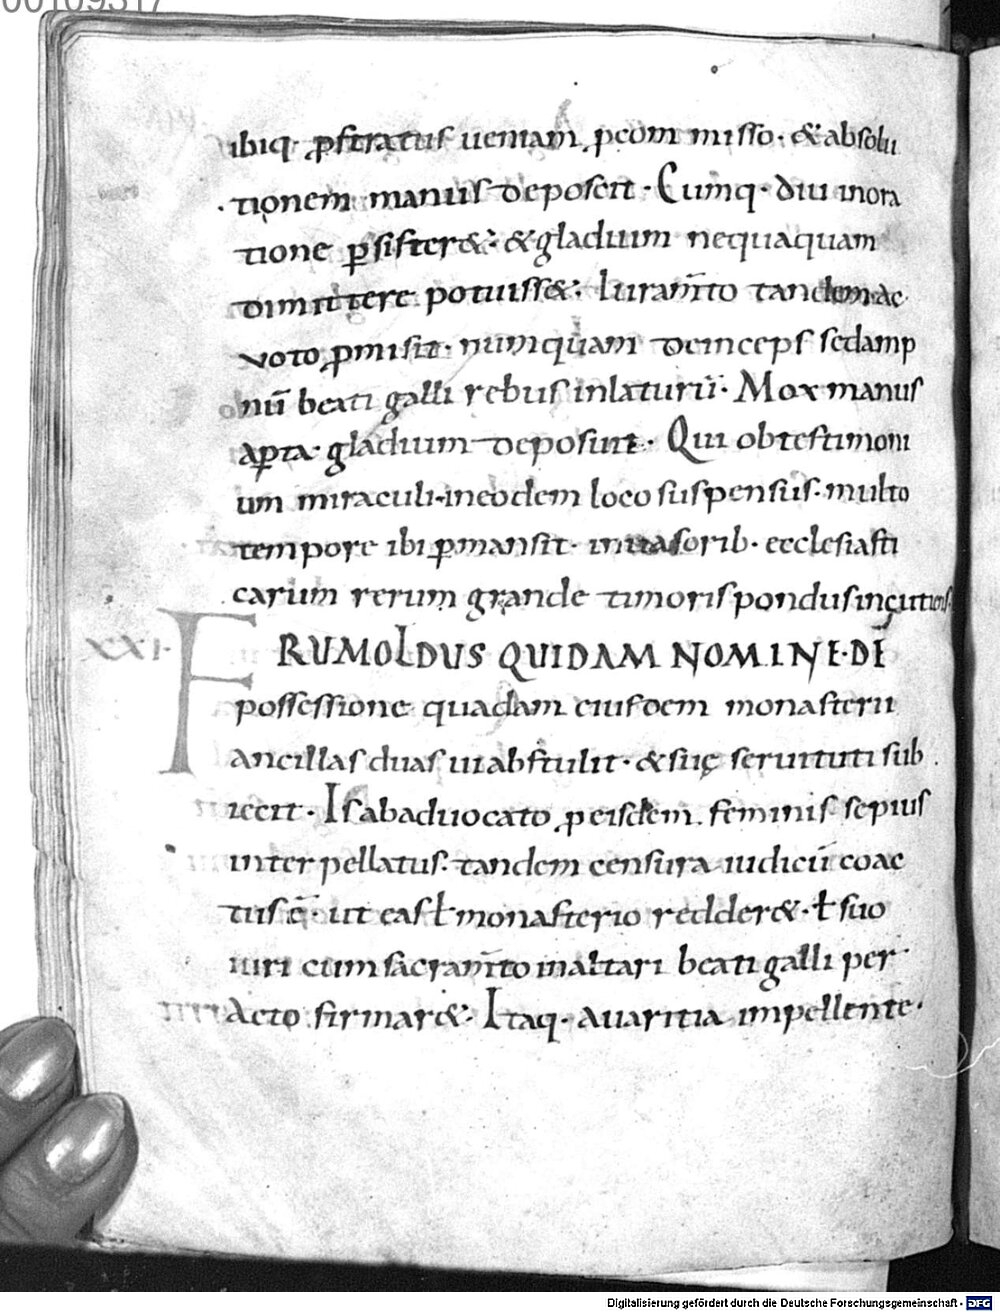 00109317
ibiq; ꝓstratus ueniam, ꝓ commisso· &absolu
tionem manus deposcit· Cumq· diu inora
tione ꝑsister&· &gladium nequaquam
dimittere potuiss&· Iuram̅to tandem ac
uoto, ꝓmisit· numquam deinceps sedamp
nu̅ beati galli rebus inlaturu̅· Mox manus
aꝑta· gladium deposuit· Qui obtestimoni
um miraculi·ineodem loco suspensus·multo
tempore ibi ꝑmansit· inuasorib· ecclesiasti
carum rerum grande timoris pondus inçutiens
XXI·
FRUMOLDUS QUIDAM NOMINE·DE̅
possessione quadam eiusdem monasterii
ancillas duas ui abstulit· &suę seruituti sub
iecit· Is abaduocato, ꝓ eisdem feminis sepius
interpellatus· tandem censura iudicii coac
tus e̅· ut eas ł monasterio redder&· ł suo
iuri cum sacram̅to inaltari beati galli per
acto firmar&· Itaq· auaritia impellente·
Digitalisierung gefördert durch die Deutsche Forschungsgemeinschaft - DFG